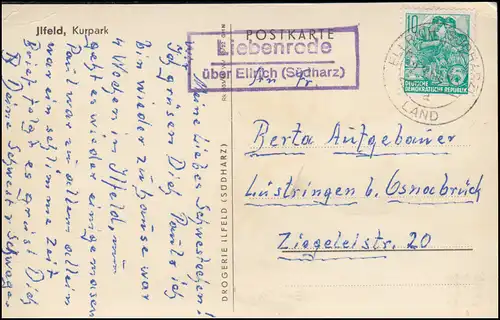 Jlfeld, Kurpark
POSTKARTE
Liebenrode
über Ellrich (Südharz)
10
DEUTSCHE
DEMOKRATISCHE REPUBLIK
ELLRICH
LAND
An Fr.
Berta Aufgebauer
Lüstringen b. Osnabrück
Ziegeleistr. 20
DROGERIE ILFELD (SÜDHARZ)
Meine liebes Schwesterchen!
Wir grüsen Dich Pauls ich
bin wieder zuhause war
4 Wochen in Ilfeld, nun
geht es wieder einigemasen
Paul war zu allem allein
war ein schlimme Zeit
Brief folgt es grüst Dich
Deine Schwest u Schwager